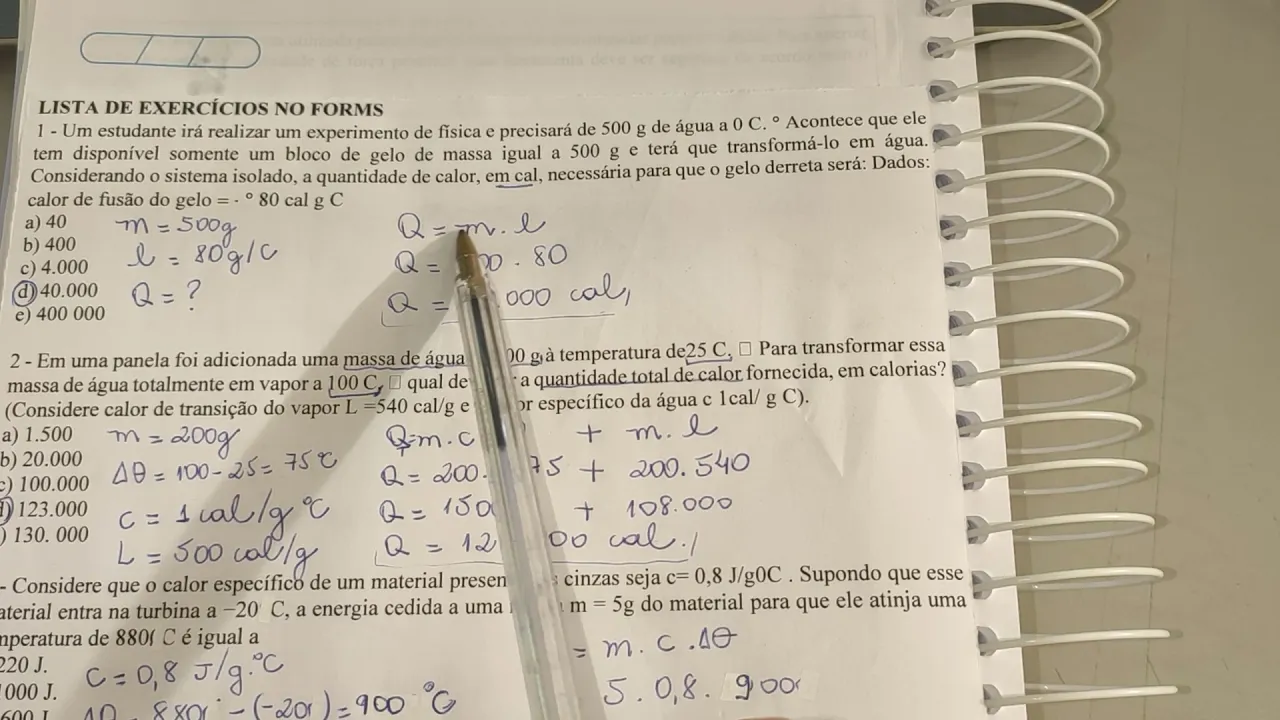 LISTA DE EXERCÍCIOS NO FORMS
1 - Um estudante irá realizar um experimento de física e precisará de 500 g de água a 0 C. ° Acontece que ele
tem disponível somente um bloco de gelo de massa igual a 500 g e terá que transformá-lo em água.
Considerando o sistema isolado, a quantidade de calor, em cal, necessária para que o gelo derreta será: Dados:
calor de fusão do gelo = · ° 80 cal g C
a) 40
b) 400
c) 4.000
d) 40.000
e) 400 000
m = 500g
l = 80g/C
Q = ?
Q = m. l
Q = 00 . 80
Q = 000 cal,
2 - Em uma panela foi adicionada uma massa de água 00 g à temperatura de25 C, □ Para transformar essa
massa de água totalmente em vapor a 100 C, □ qual de a quantidade total de calor fornecida, em calorias?
(Considere calor de transição do vapor L =540 cal/g e or específico da água c 1cal/ g C).
a) 1.500
b) 20.000
c) 100.000
d) 123.000
) 130. 000
m = 200g
Δθ = 100-25= 75°C
c = 1 cal/g °C
L = 500 cal/g
Q=m.c + m.l
Q = 200. 75 + 200.540
Q = 150 + 108.000
Q = 12 00 cal.
- Considere que o calor específico de um material presen cinzas seja c= 0,8 J/g0C . Supondo que esse
aterial entra na turbina a −20 C, a energia cedida a uma m = 5g do material para que ele atinja uma
mperatura de 880 C é igual a
220 J.
000 J.
600 J
C = 0,8 J/g.°C
880 - (-20) = 900 °C
= m. c .Δθ
5. 0,8. 900